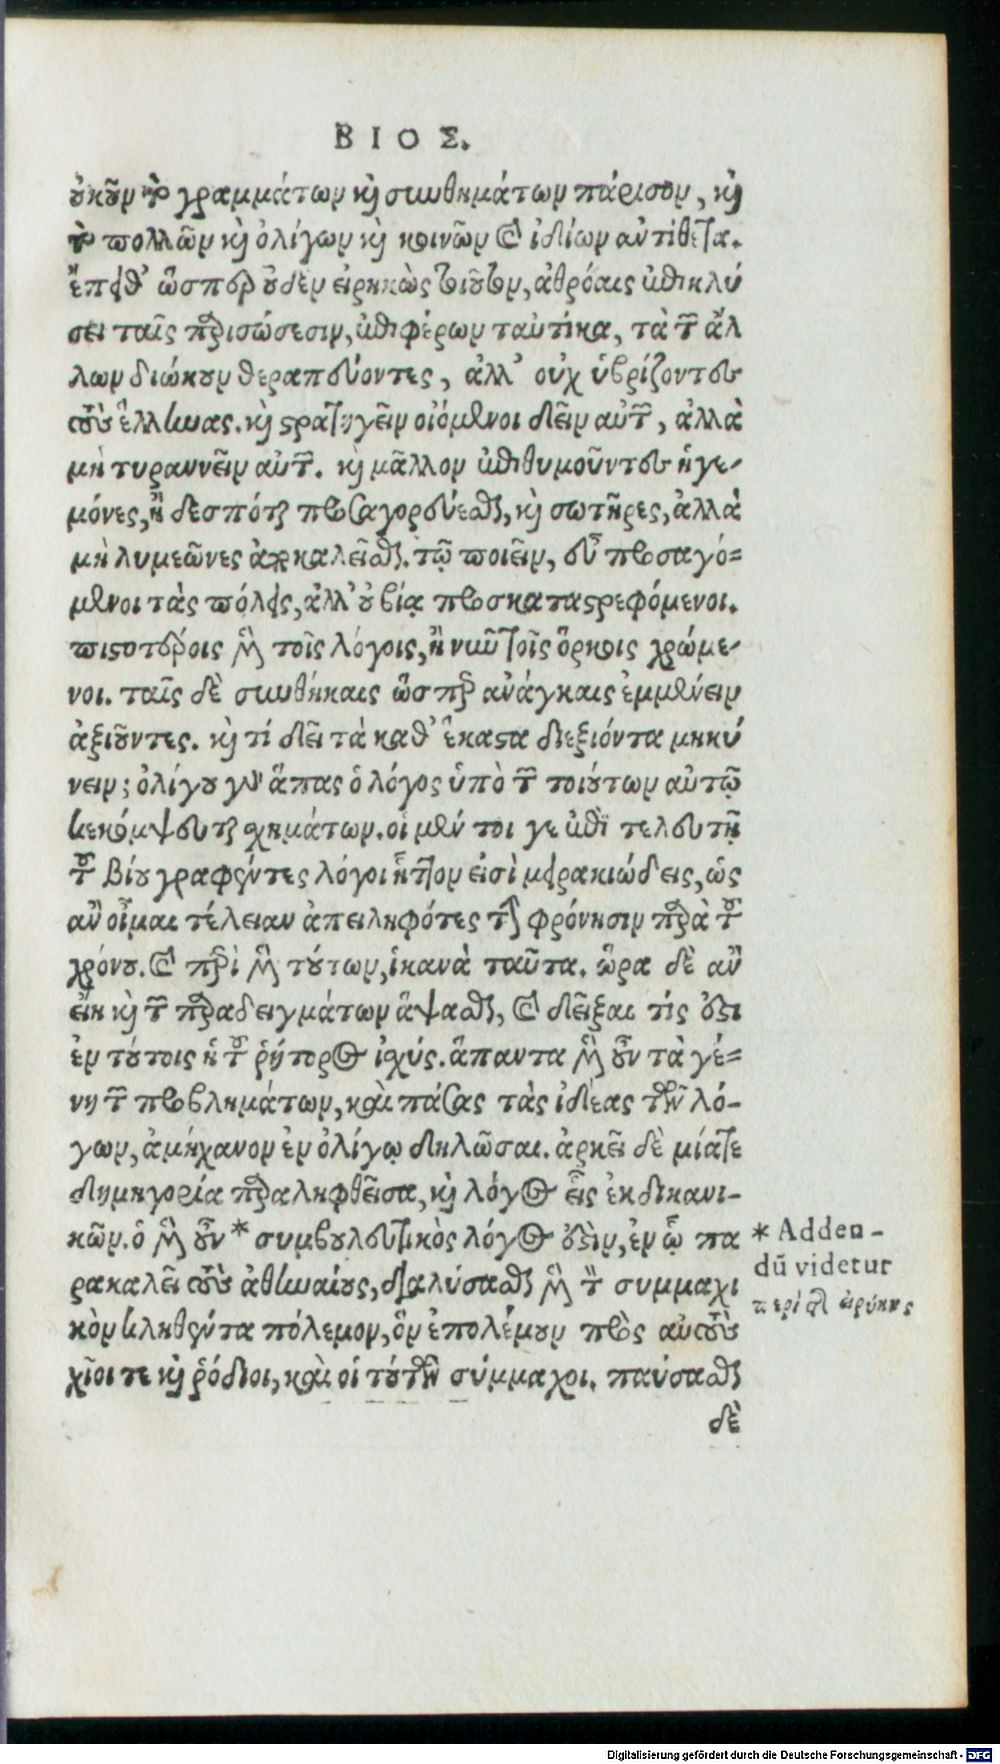 ΒΙΟΣ.
οὐκοῦν τῶν γραμμάτων καὶ συνθημάτων πάρισον, καὶ
τῶν πολλῶν καὶ ὀλίγων καὶ κοινῶν καὶ ἰδίων ἀντίθετα.
ἔπειθ' ὥσπερ οὐδὲν εἰρηκὼς τοιοῦτον, ἀθρόαις ἐπικλύ
σει ταῖς παρισώσεσιν, ἐπιφέρων ταυτίκα, τὰ τῶν ἄλ
λων διώκουν θεραπεύοντες, ἀλλ' οὐχ ὑβρίζοντες
τοὺς ἕλληνας. καὶ στρατηγεῖν οἰόμενοι δεῖν αὐτῶν, ἀλλὰ
μὴ τυραννεῖν αὐτῶν. καὶ μᾶλλον ἐπιθυμοῦντες ἡγε-
μόνες, ἢ δεσπόται προσαγορεύεσθαι, καὶ σωτῆρες, ἀλλὰ
μὴ λυμεῶνες ἀποκαλεῖσθαι. τῷ ποιεῖν, εὖ προσαγό=
μενοι τὰς πόλεις, ἀλλ' οὐ βίᾳ προσκαταστρεφόμενοι.
πιστοτέροις μὲν τοῖς λόγοις, ἢ νῦν τοῖς ὅρκοις χρώμε-
νοι. ταῖς δὲ συνθήκαις ὥσπερ ἀνάγκαις ἐμμένειν
ἀξιοῦντες. καὶ τί δεῖ τὰ καθ' ἕκαστα διεξιόντα μηκύ
νειν; ὀλίγου γὰρ ἅπας ὁ λόγος ὑπὸ τῶν τοιούτων αὐτῷ
κεκόμψευται σχημάτων. οἱ μέν τοι γε ἐπὶ τελευτῇ
τοῦ βίου γραφέντες λόγοι ἧττον εἰσὶ μειρακιώδεις, ὡς
ἂν οἶμαι τέλειαν ἀπειληφότες τὴν φρόνησιν παρὰ τοῦ
χρόνου. καὶ περὶ μὲν τούτων, ἱκανὰ ταῦτα. ὥρα δὲ ἂν
εἴη καὶ τῶν παραδειγμάτων ἅψασθαι, καὶ δεῖξαι τίς ἐστι
ἐν τούτοις ἡ τοῦ ῥήτορος ἰσχύς. ἅπαντα μὲν οὖν τὰ γέ=
νη τῶν προβλημάτων, καὶ πάσας τὰς ἰδέας τῶν λό-
γων, ἀμήχανον ἐν ὀλίγῳ δηλῶσαι. ἀρκεῖ δὲ μία τε
δημηγορία παραληφθεῖσα, καὶ λόγος εἷς ἐκ δικανι-
κῶν. ὁ μὲν οὖν * συμβουλευτικὸς λόγος ἐστὶν, ἐν ᾧ πα
ρακαλεῖ τοὺς ἀθηναίους, διαλύσασθαι μὲν τὸν συμμαχι
κὸν κληθέντα πόλεμον, ὃν ἐπολέμουν πρὸς αὐτοὺς
χῖοι τε καὶ ῥόδιοι, καὶ οἱ τούτων σύμμαχοι. παύσασθαι
δὲ
* Adden-
dũ videtur
περὶ τῆς εἰρήνης
Digitalisierung gefördert durch die Deutsche Forschungsgemeinschaft - DFG